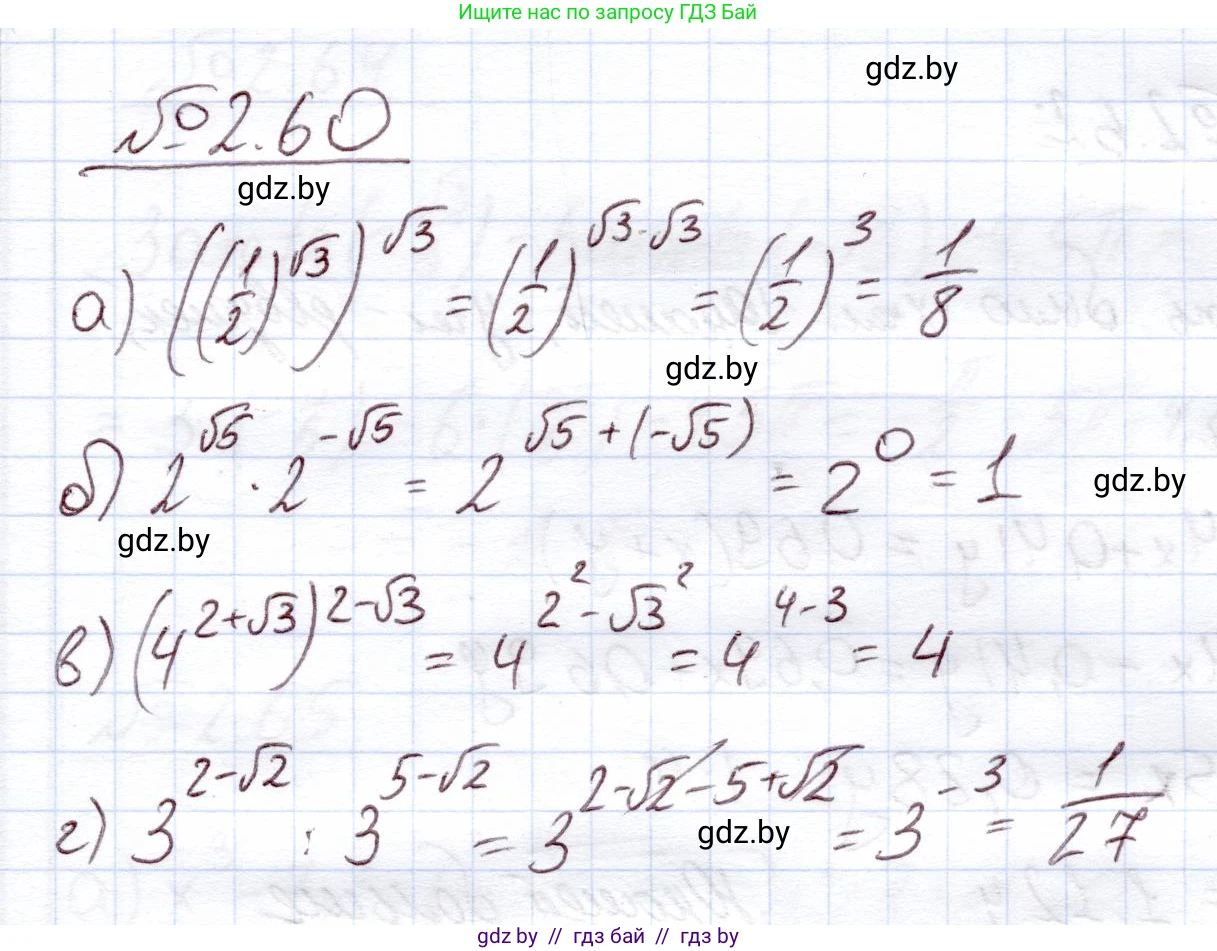 Ищите нас по запросу ГДЗ Бай
gdz.by
№2.60
gdz.by
а) ((1/2)^√3)^√3 = (1/2)^(√3·√3) = (1/2)^3 = 1/8
gdz.by
б) 2^√5 · 2^(-√5) = 2^(√5+(-√5)) = 2^0 = 1
gdz.by
gdz.by
в) (4^(2+√3))^(2-√3) = 4^(2²-√3²) = 4^(4-3) = 4
г) 3^(2-√2) : 3^(5-√2) = 3^(2-√2-5+√2) = 3^(-3) = 1/27
gdz.by
gdz.by // гдз бай // gdz.by